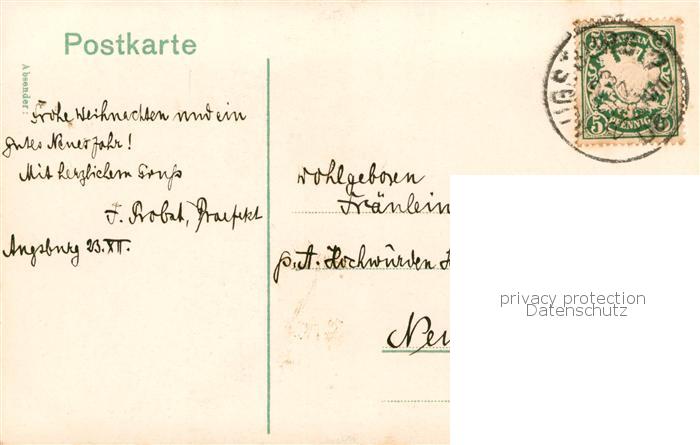 Postkarte
Absender:
Frohe Weihnachten und ein
gutes Neues Jahr!
Mit herzlichem Gruß
J. Probst, Praefekt
Augsburg 23.XII.
Wohlgeboren
Fräulein
p. A. Hochwürden H
Neu
BAYERN
5 5
PFENNIG
privacy protection
Datenschutz